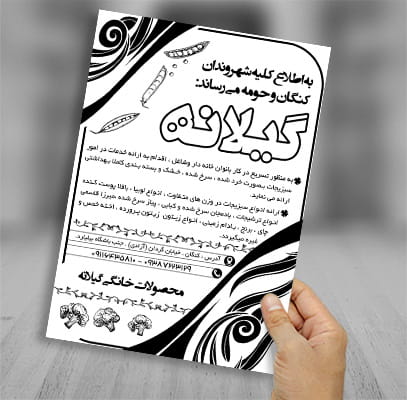 به اطلاع کلیه شهروندان
کنگان و حومه می رساند:
گیلانه
به منظور تسریع در کار بانوان خانه دار وشاغل ، اقدام به ارائه خدمات در امور
سبزیجات بصورت خرد شده ، سرخ شده ، خشک و بسته بندی کاملا بهداشتی
ارائه می نماید.
ارائه انواع سبزیجات در وزن های متفاوت ، انواع لوبیا ، باقلا پوست کنده
انواع ترشیجات ، بادمجان سرخ شده و کبابی ، پیاز سرخ شده ، سیرترا قاسمی
چای ، برنج ، بادام زمینی ، انواع زیتون زیتون پرورده ، اخته خمس و
غیره میگیردد.
آدرس : کنگان . خیابان گردان (آزادی) . جنب باشگاه بیلیارد.
۰۹۱۱۶۴۳۵۸۱۰ - ۰۹۳۸۷۶۲۳۱۲۹
محصولات خانگی گیلانه